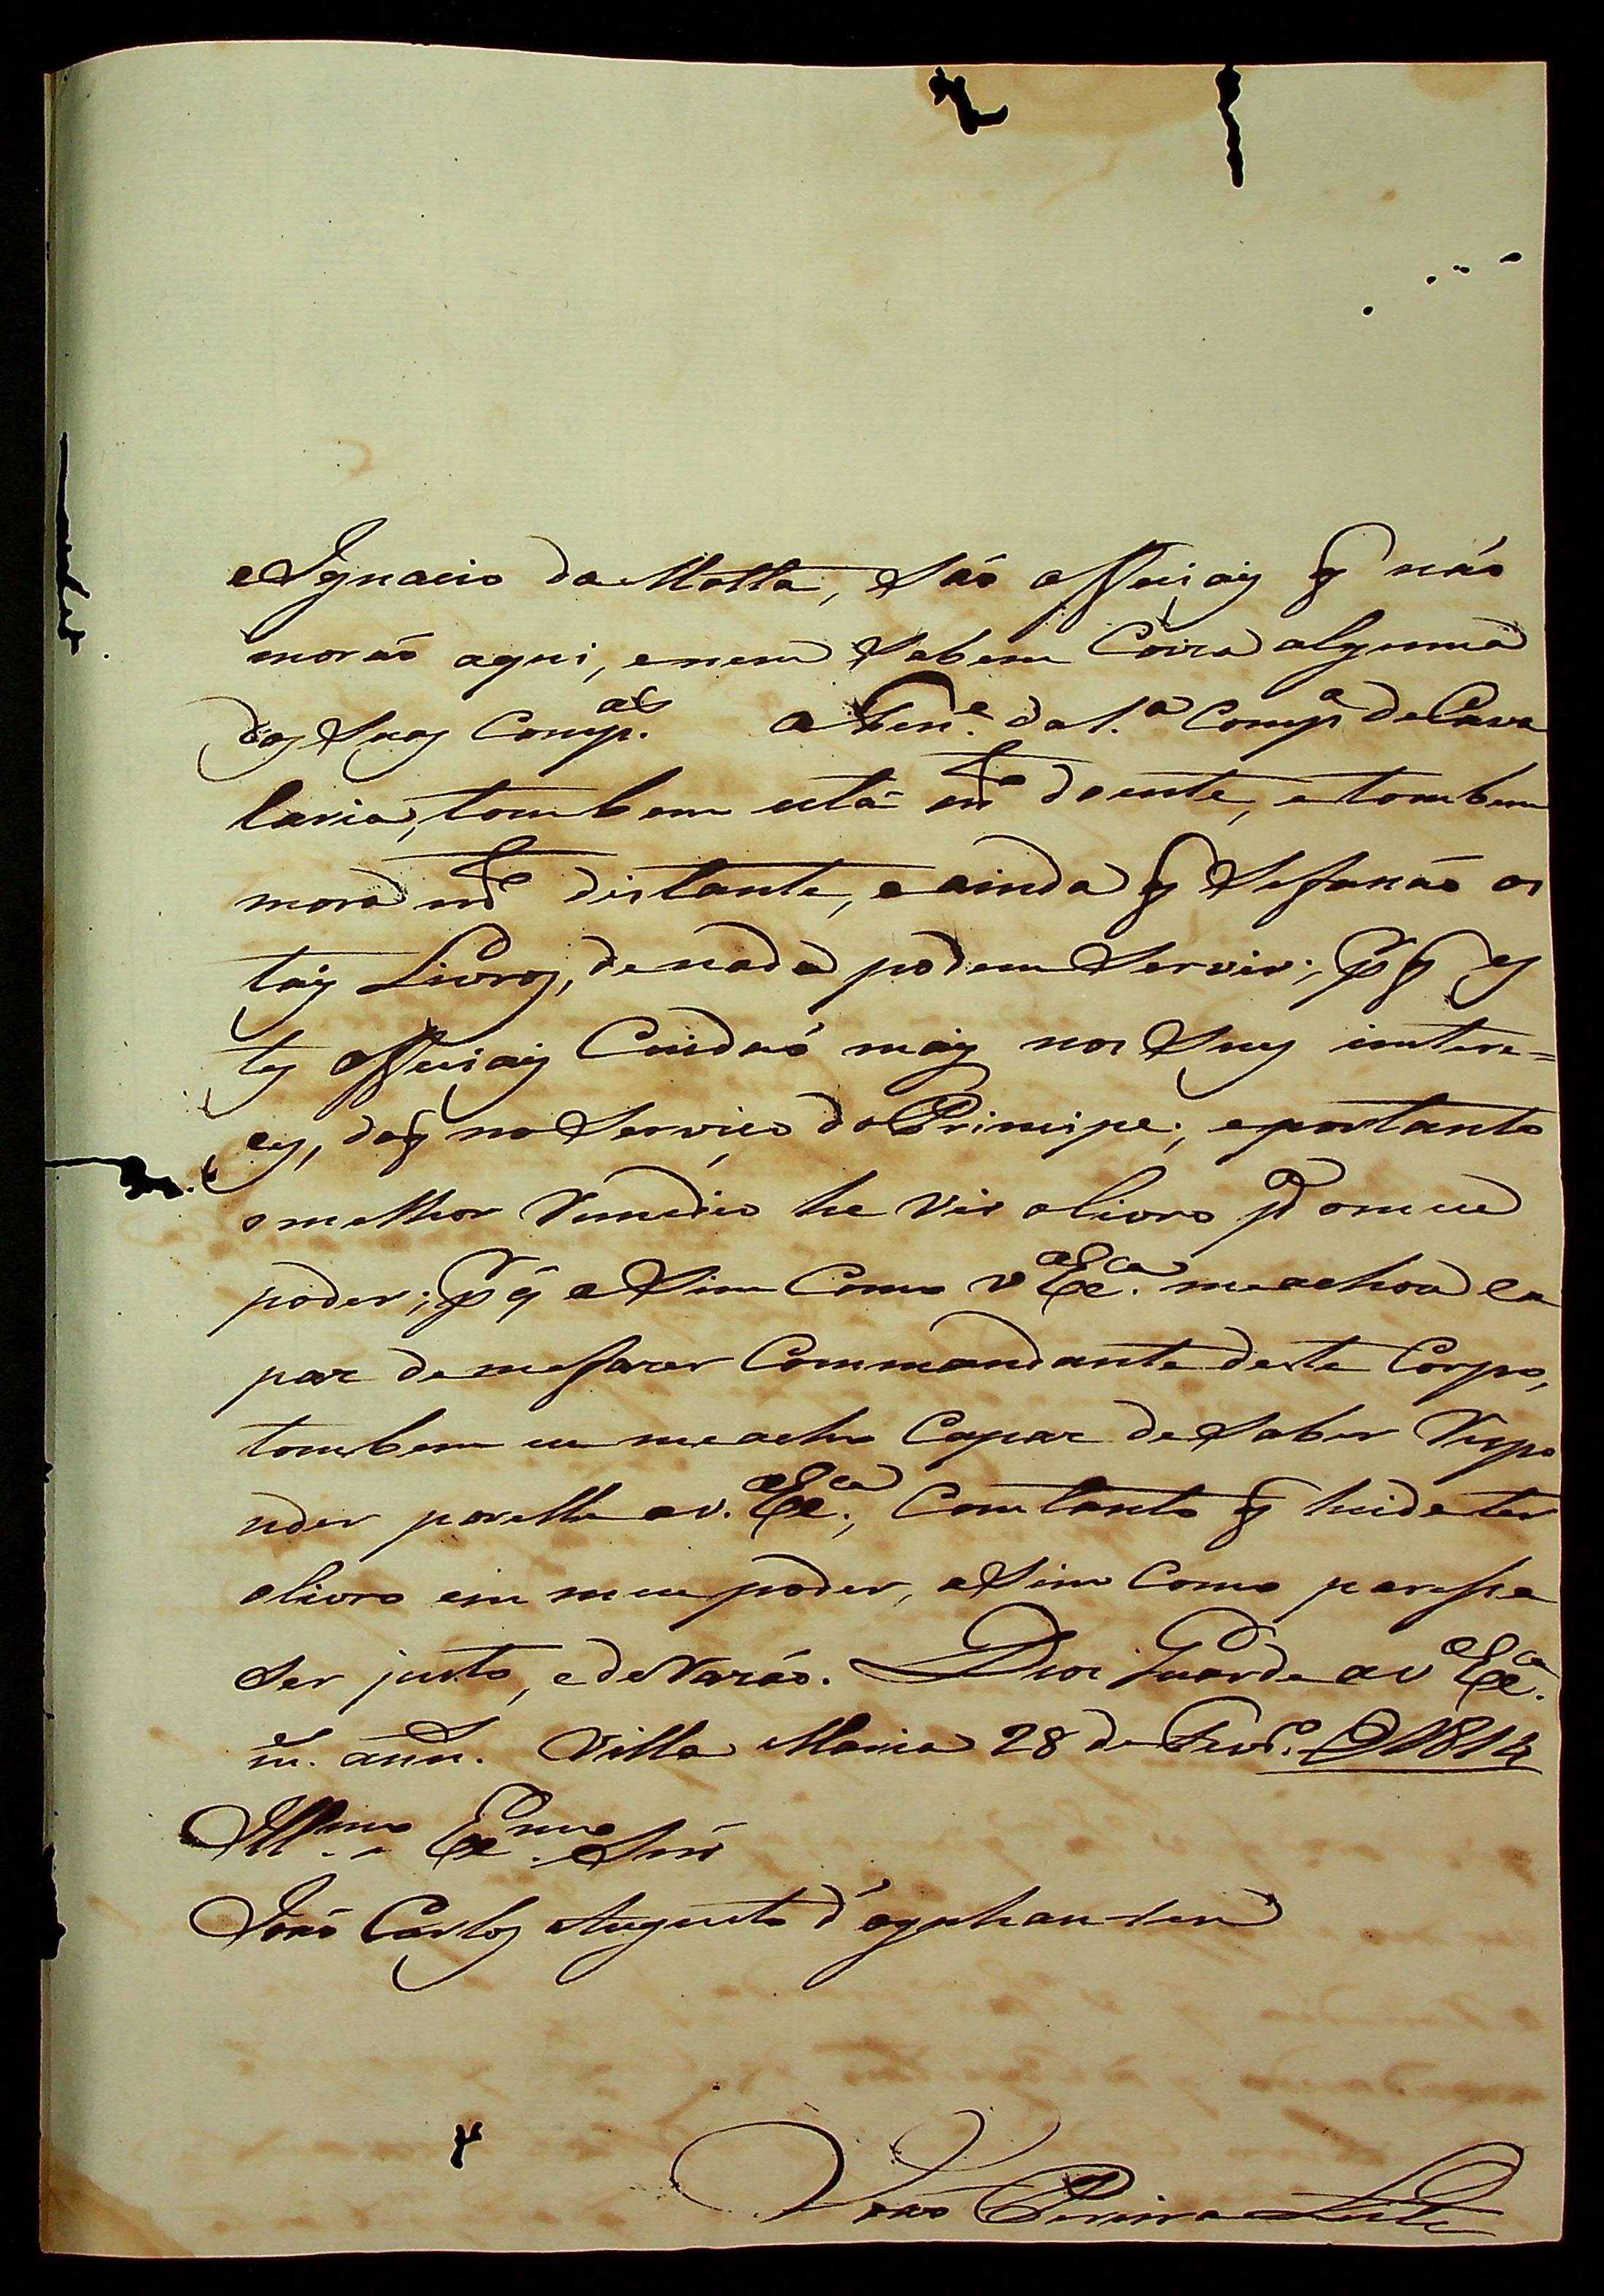 e Ignacio da Motta, São officiais q̃ não
morão aqui, e nem Sabem Coiza alguma
das Suas Comp.as O Ten.e da 1.a Comp.a de Cava
laria, tambem está m.to doente, e tambem
mora m.to distante, e ainda q̃ Se fasão os
tais Livros, de nada podem Servir; p.r q̃ es
tes officiais Cuidão mais nos Seus intere=
ces, do q̃ no Serviço do Principe; e portanto
o melhor Remedio he vir o livro p.a o meu
poder; p.r q̃ aSim Como V Ex.ca me achou ca
paz de me fazer Commandante deste Corpo,
tambem eu me acho Capaz de Saber Respo
nder por elle a V. Ex.ca, Com tanto q̃ heide ter
o livro em meu poder, aSim Como paresse
Ser justo, e de Razão. Deos Guarde a V Ex.ca
m.s ann.s Villa Maria 28 de Fev.o D 1814
Ill.mo e Ex.mo Snr
João Carlos Augusto d'oeynhausen
João Pereira Leite